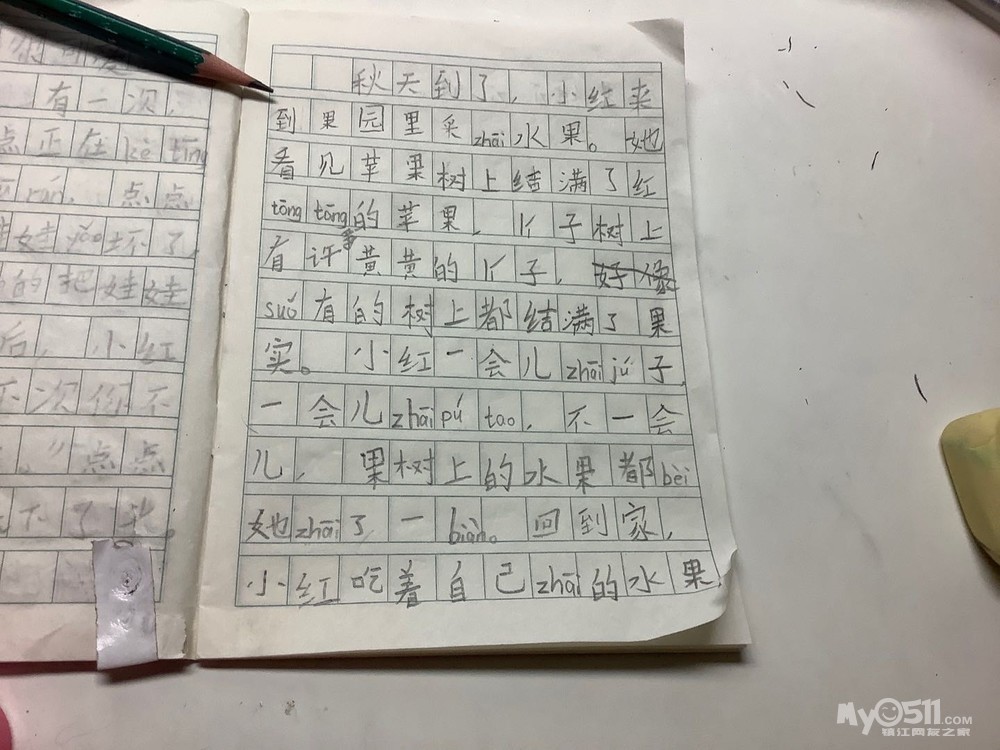 有一次，
点正在kè tīng
点点
娃娃 坏了，
的把娃娃
后，小红
下次你不
点点
下了
秋天到了，小红来
到果园里采zhāi水果。她
看见苹果树上结满了红
tōng tōng的苹果，个子树上
有许多黄黄的个子，
suǒ有的树上都结满了果
实。小红一会儿zhāi jú子，
一会儿zhāi pú tao，不一会
儿，果树上的水果都bèi
她zhāi了一biàn。回到家，
小红吃着自己zhāi的水果，
My0511.COM
镇江网友之家